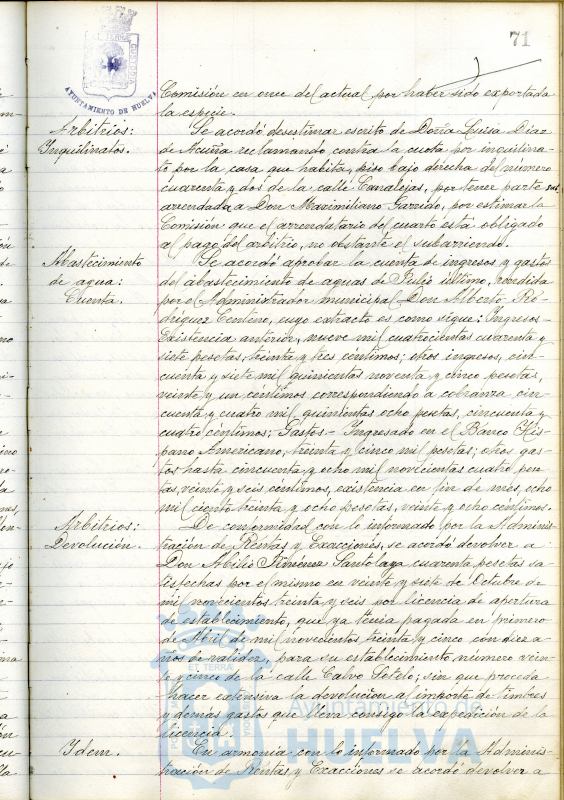 71
AYUNTAMIENTO DE HUELVA
Comisión en once del actual por haber sido exportada
la especie.
Arbitrios:
Inquilinatos.
Se acordó desestimar escrito de Doña Luisa Diaz
de Acuña reclamando contra la cuota por inquilina-
to por la casa que habita, piso bajo derecha del número
cuarenta y dos de la calle Canalejas, por tener parte sub
arrendada a Don Maximiliano Garrido, por estimar la
Comisión que el arrendatario del cuarto está obligado
al pago del arbitrio, no obstante el subarriendo.
Abastecimiento
de agua:
Cuenta.
Se acordó aprobar la cuenta de ingresos y gastos
del abastecimiento de aguas de Julio último, rendida
por el Administrador municipal Don Alberto Ro-
driguez Centeno, cuyo extracto es como sigue: Ingresos-
Existencia anterior, nueve mil cuatrocientas cuarenta y
siete pesetas, treinta y tres céntimos; otros ingresos, cin-
cuenta y siete mil quinientas noventa y cinco pesetas,
veinte y un céntimos correspondiendo a cobranza cin-
cuenta y cuatro mil quinientas ocho pesetas, cincuenta y
cuatro céntimos; Gastos- Ingresado en el Banco His-
pano Americano, treinta y cinco mil pesetas; otros gas-
tos hasta cincuenta y ocho mil novecientas cuatro pese-
tas, veinte y seis céntimos, existencia en fin de mes, ocho
mil ciento treinta y ocho pesetas, veinte y ocho céntimos.
Arbitrios:
Devolución.
De conformidad con lo informado por la Adminis-
tración de Rentas y Exacciones, se acordó devolver a
Don Abilio Jiménez Santolaya cuarenta pesetas sa-
tisfechas por el mismo en veinte y siete de Octubre de
mil novecientos treinta y seis por licencia de apertura
de establecimiento, que ya tenia pagada en primero
de Abril de mil novecientos treinta y cinco con diez a-
ños de validez, para su establecimiento número vein-
te y cinco de la calle Calvo Sotelo; sin que proceda
hacer extensiva la devolución al importe de timbres
y demás gastos que lleva consigo la expedición de la
licencia.
Idem.
En armonia con lo informado por la Adminis-
tración de Rentas y Exacciones se acordó devolver a
Ayuntamiento de
HUELVA